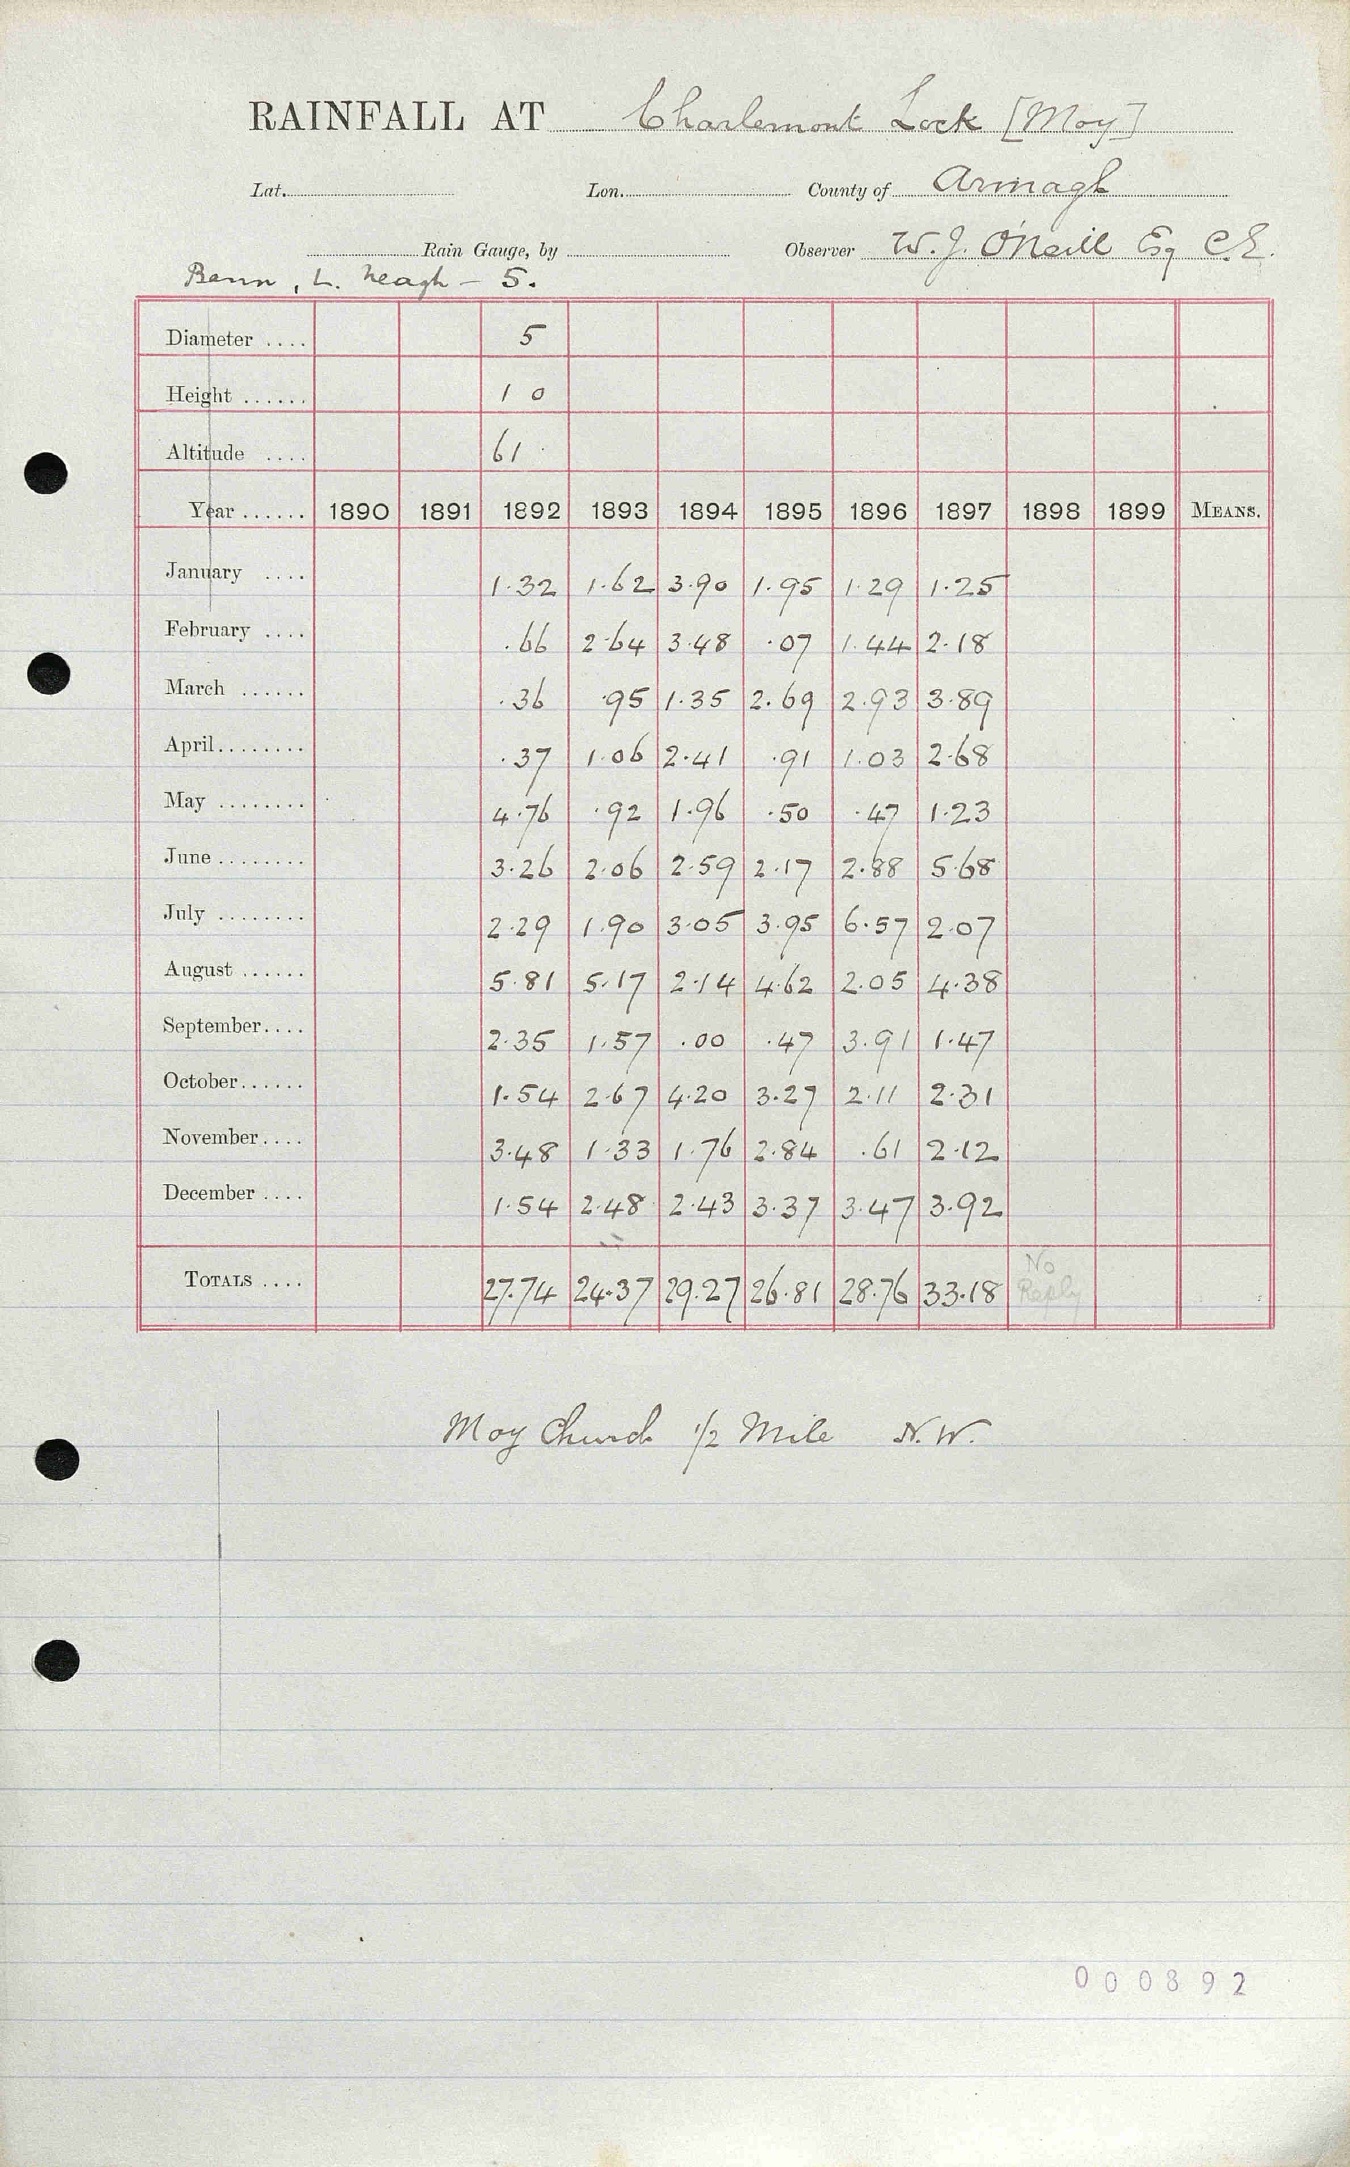 RAINFALL AT Charlemont Lock [Moy]
Lat. Lon. County of Armagh
Rain Gauge, by Observer W. J. O'Neill Esq C.E.
Bann, L. Neagh – 5.
Diameter .... 5
Height ...... 1 0
Altitude .... 61
Year ...... 1890 1891 1892 1893 1894 1895 1896 1897 1898 1899 MEANS.
January .... 1.32 1.62 3.90 1.95 1.29 1.25
February .... .66 2.64 3.48 .07 1.44 2.18
March ...... .36 .95 1.35 2.69 2.93 3.89
April........ .37 1.06 2.41 .91 1.03 2.68
May ........ 4.76 .92 1.96 .50 .47 1.23
June ........ 3.26 2.06 2.59 2.17 2.88 5.68
July ........ 2.29 1.90 3.05 3.95 6.57 2.07
August ...... 5.81 5.17 2.14 4.62 2.05 4.38
September.... 2.35 1.57 .00 .47 3.91 1.47
October...... 1.54 2.67 4.20 3.27 2.11 2.31
November.... 3.48 1.33 1.76 2.84 .61 2.12
December .... 1.54 2.48 2.43 3.37 3.47 3.92
TOTALS .... 27.74 24.37 29.27 26.81 28.76 33.18 No Reply
Moy Church 1/2 Mile N.W.
000892